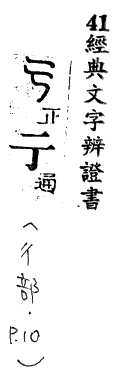 41經典文字辨證書
正
亍
通
(彳部.P.10)